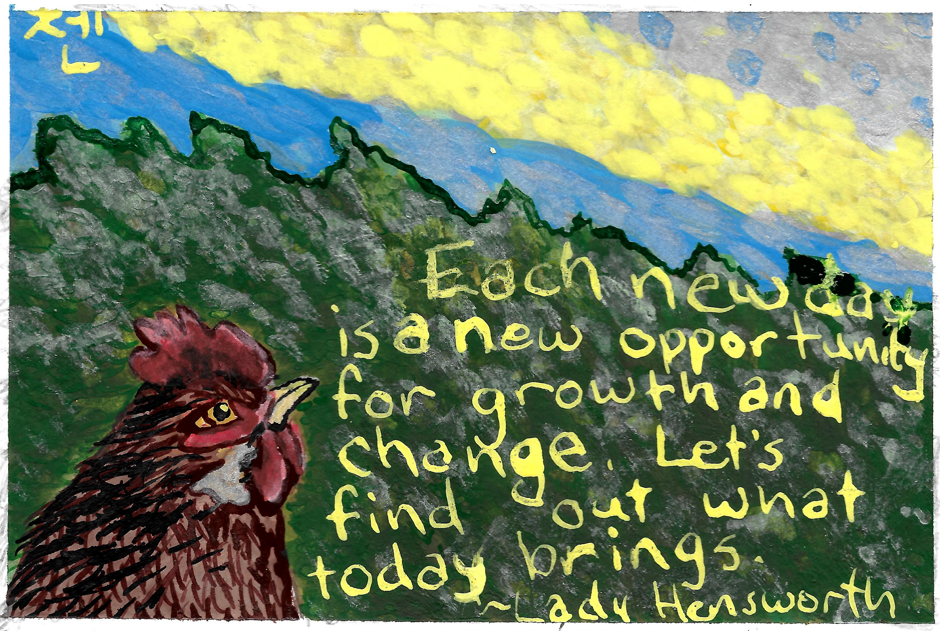 Each new day
is a new opportunity
for growth and
change. Let's
find out what
today brings.
~Lady Hensworth